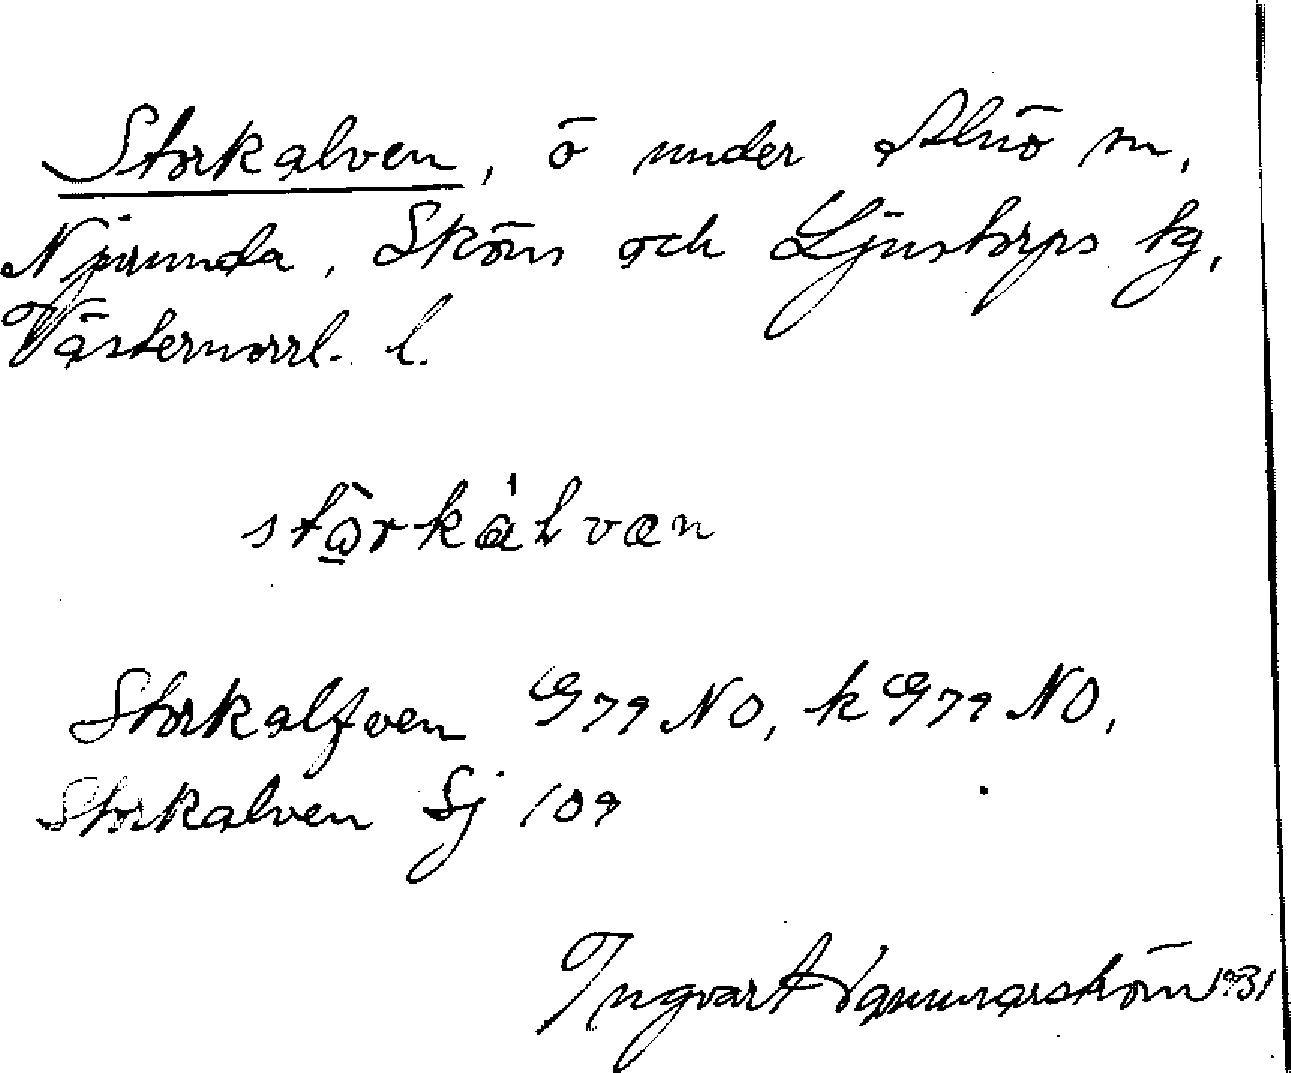 Storkalven, ö under Alnö sn,
Njurunda, Sköns och Ljustorps tg,
Västernorrl. l.
Storkalfven G79 NO, k G79 NO,
Storkalven Sj 109
Ingvart 1931